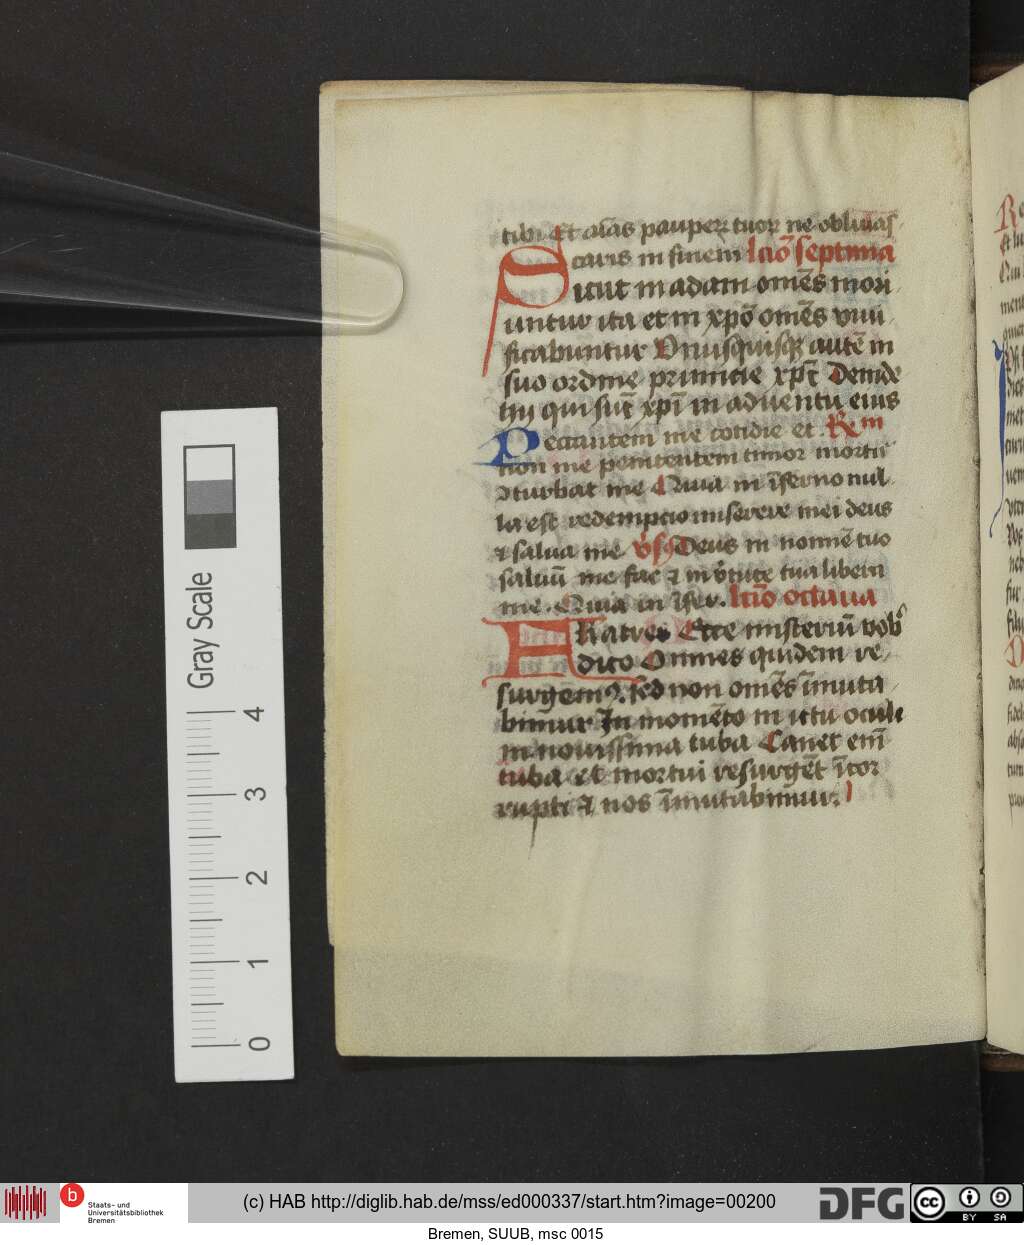 tibi Et aīas pauperꝝ tuoꝝ ne obliuis
caris in finem lcīo septima
Sicut in adam om̄es mori
untur ita et in xp̄o om̄es viui
ficabuntur Vnusquisqꝫ autē in
suo ordine primicie xp̄s Deinde
hij qui sūt xp̄i in aduentu eius
Peccantem me cotidie et R̄m
non me penitentem timor mortis
ↄturbat me Quia in īferno nul
la est redempcio miserere mei deus
⁊ salua me v̄sꝰ Deus in nomīe tuo
saluū me fac ⁊ in v̄tute tua libera
me. Quia in īfer. lcīo octaua
FRatres Ecce misteriū vobꝭ
dico Omnes quidem re
surgemꝰ. sed non om̄es īmuta
bimur In momēto in ictu oculi
in nouissima tuba Canet enī
tuba et mortui resurgēt īcor
rupti ⁊ nos īmutabimur.
Gray Scale
4
3
2
1
0
b
Staats- und
Universitätsbibliothek
Bremen
(c) HAB http://diglib.hab.de/mss/ed000337/start.htm?image=00200
DFG
cc
BY SA
Bremen, SUUB, msc 0015